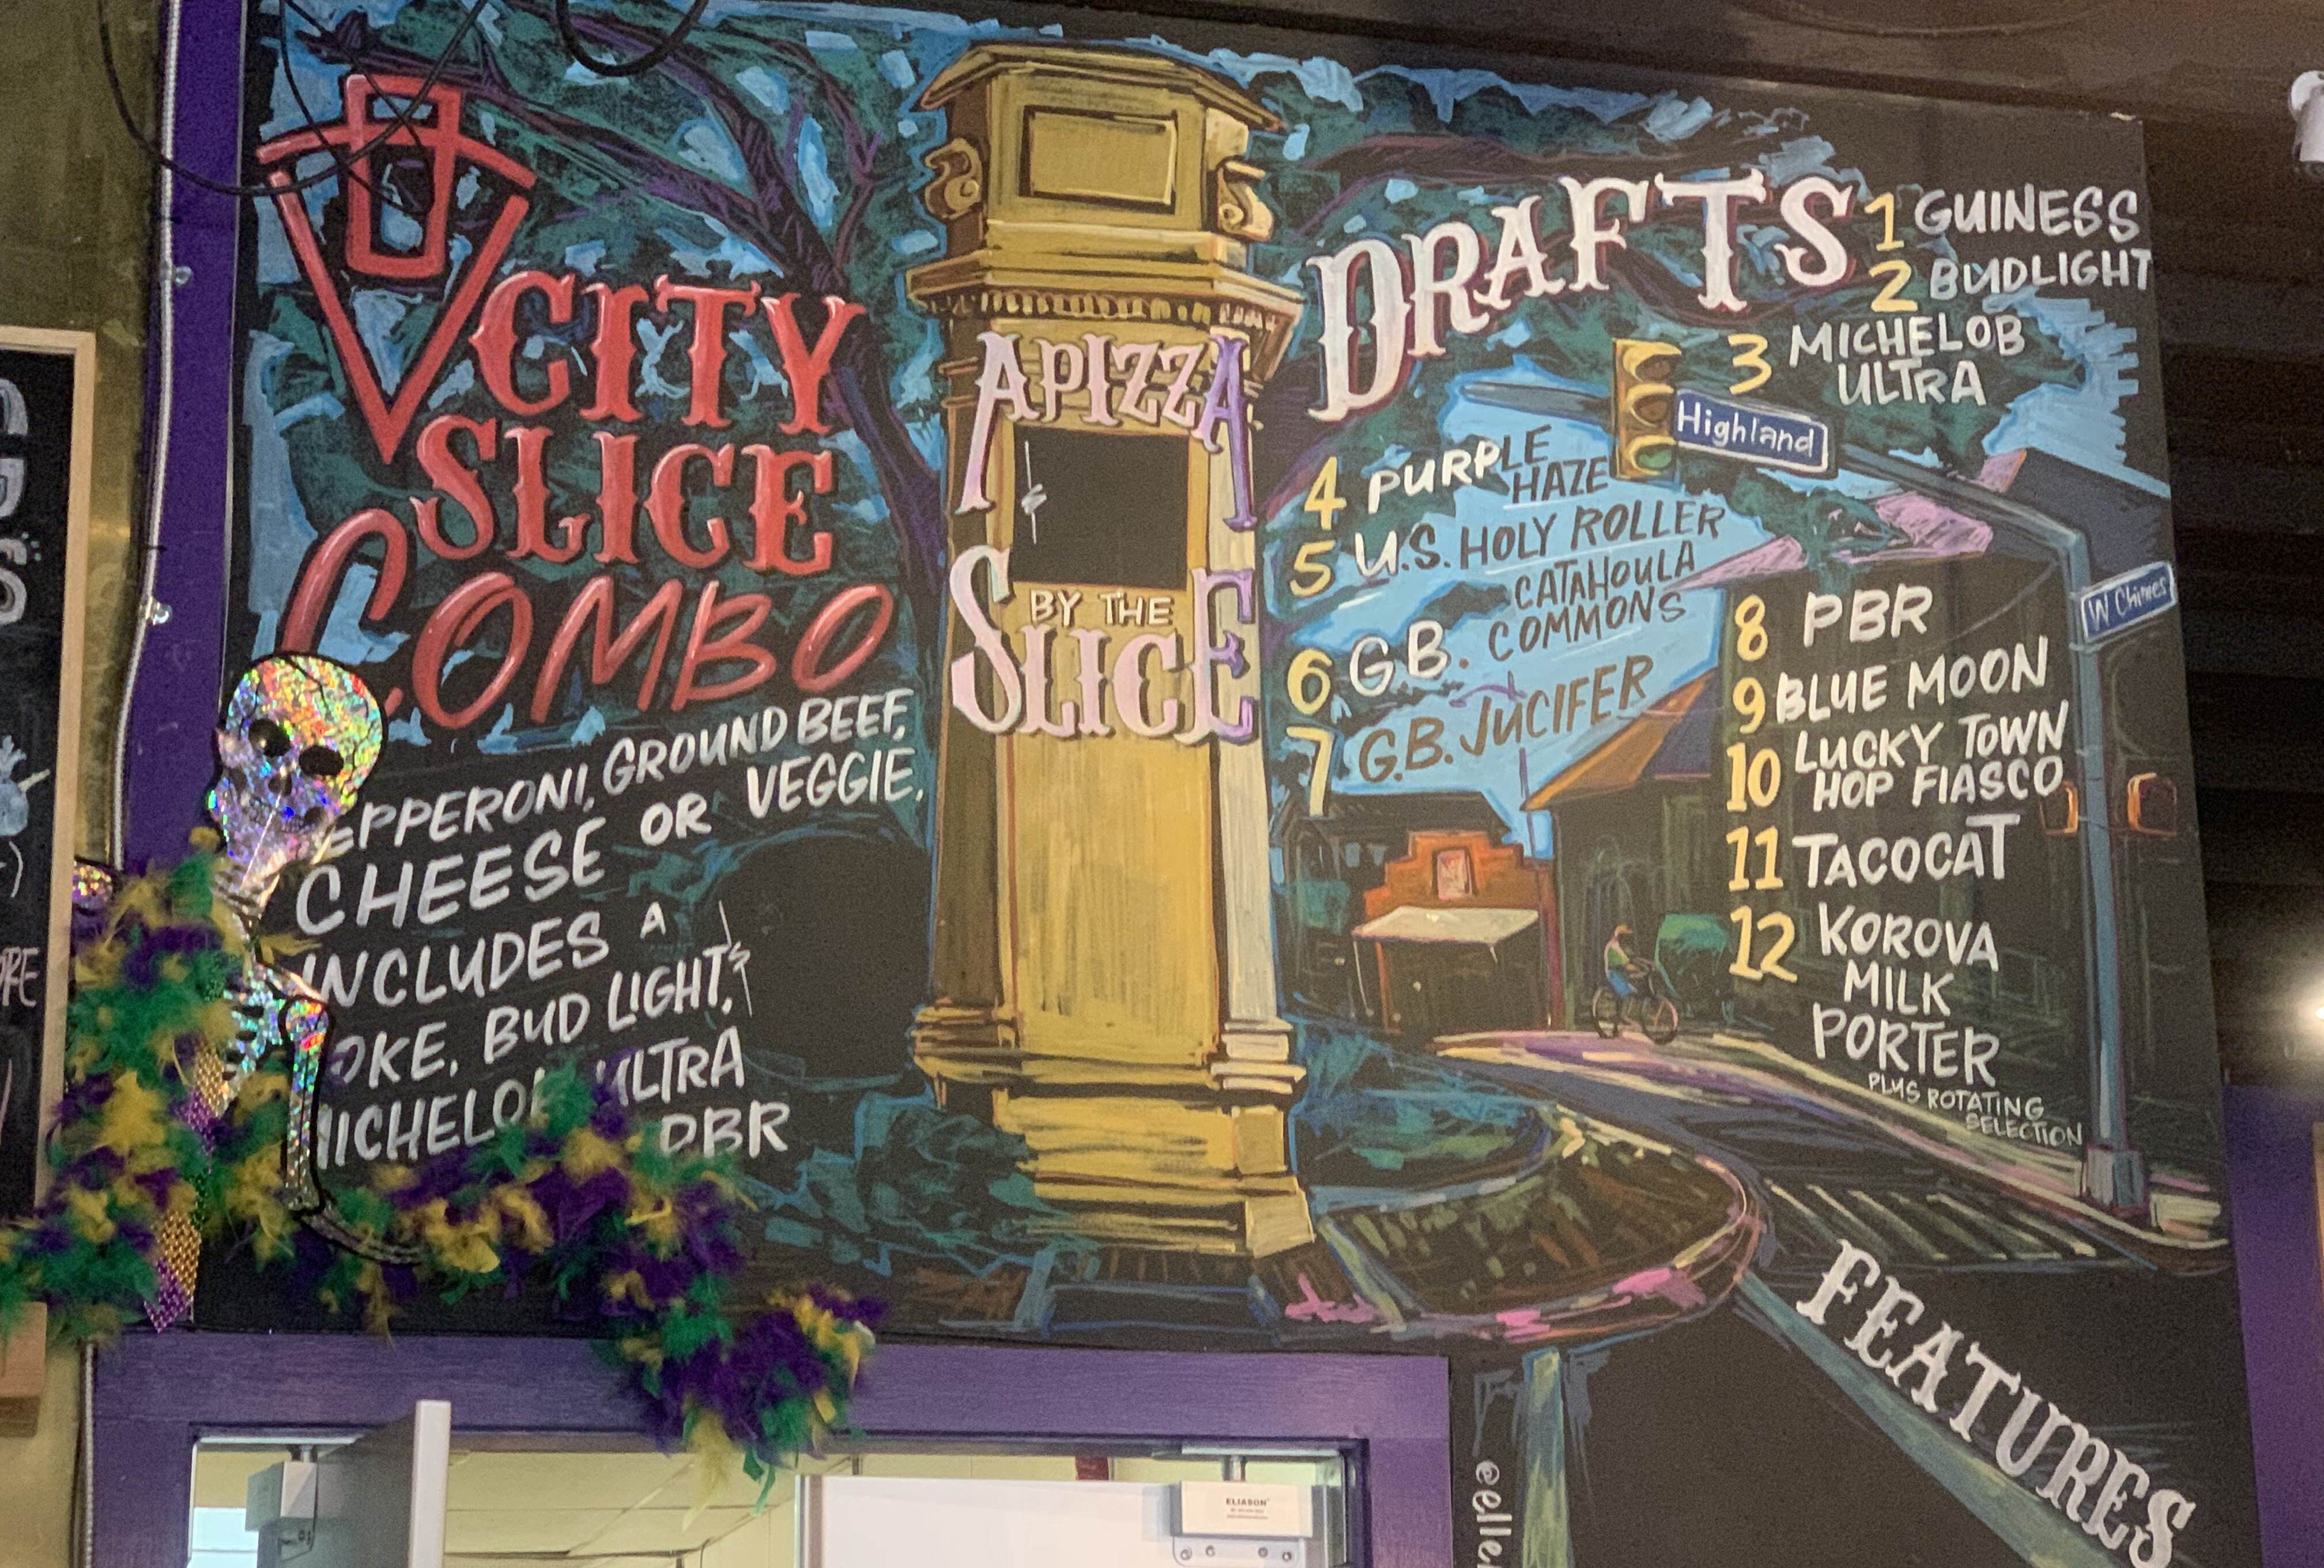 CITY
SLICE
COMBO
EPPERONI, GROUND BEEF,
CHEESE OR VEGGIE.
INCLUDES A
OKE, BUD LIGHT,
MICHELOB ULTRA
PBR
APIZZA
BY THE
SLICE
DRAFTS
1 GUINESS
2 BUDLIGHT
3 MICHELOB
ULTRA
Highland
4 PURPLE
HAZE
5 U.S. HOLY ROLLER
CATAHOULA
COMMONS
6 G.B.
7 G.B. JUCIFER
W Chimes
8 PBR
9 BLUE MOON
10 LUCKY TOWN
HOP FIASCO
11 TACOCAT
12 KOROVA
MILK
PORTER
PLUS ROTATING
SELECTION
FEATURES
ELIASON